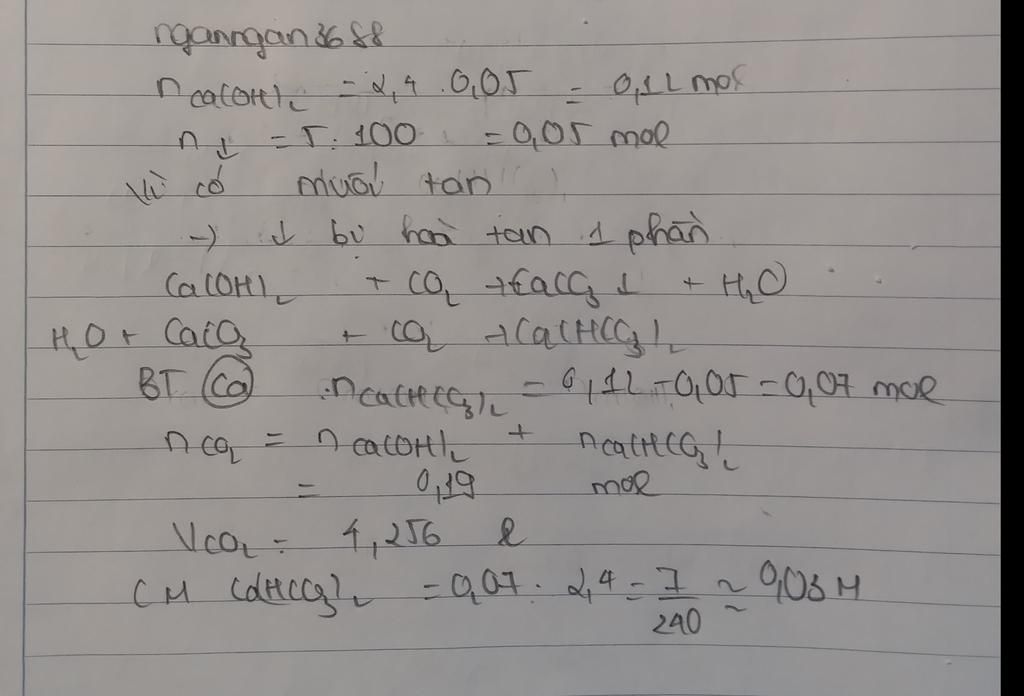 nganngan3688
nCa(OH)2 = 2,4 . 0,05 = 0,12 mol
n↓ = 5 : 100 = 0,05 mol
Vì có muối tan
→ ↓ bị hoà tan 1 phần
Ca(OH)2 + CO2 → CaCO3 ↓ + H2O
H2O + CaCO3 + CO2 → Ca(HCO3)2
BT Ca nCa(HCO3)2 = 0,12 - 0,05 = 0,07 mol
nCO2 = nCa(OH)2 + nCa(HCO3)2
= 0,19 mol
VCO2 = 4,256 l
CM Ca(HCO3)2 = 0,07 : 2,4 = 7/240 ≈ 0,03 M